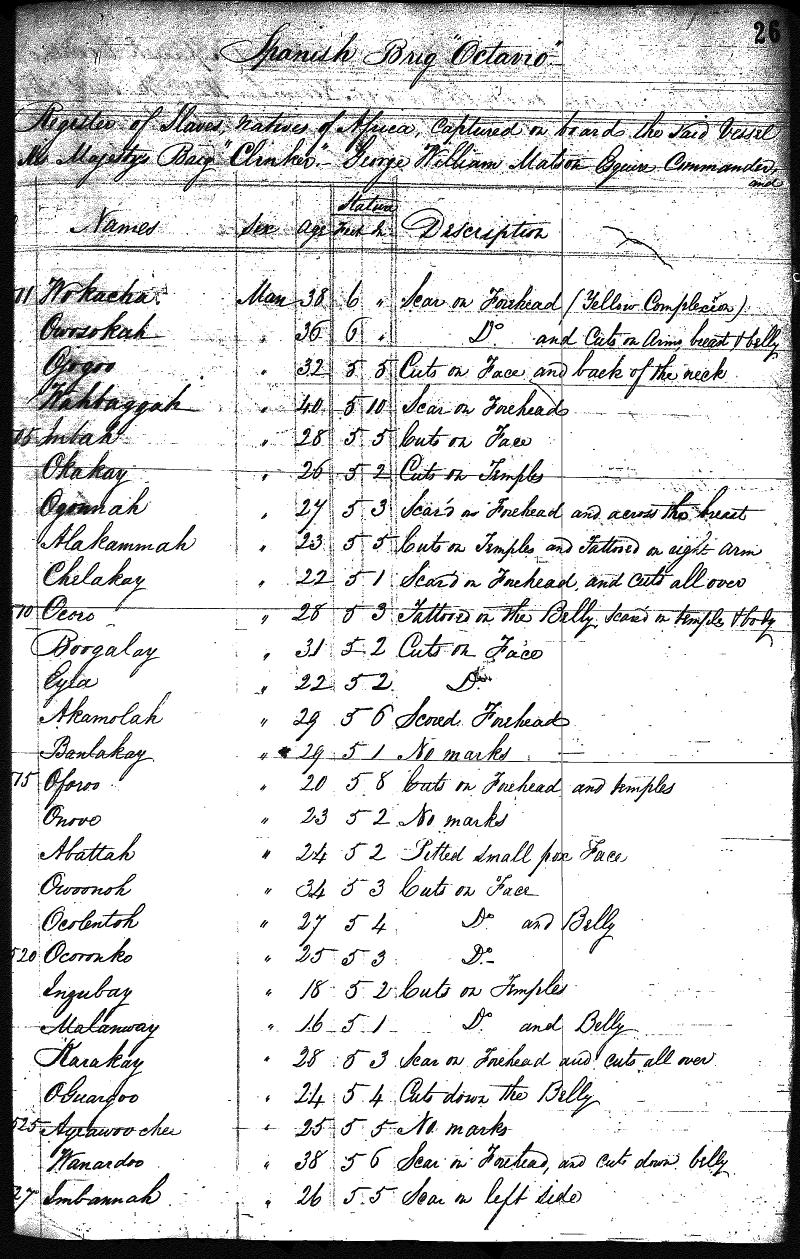 26
Spanish Brig "Octavio"
Register of Slaves, natives of Africa, captured on board the said Vessel
Majesty's Brig "Clinker" - George William Matson Esquire Commander,
and
Names Sex Age Stature Feet In Description
01 Wokacha Man 38 6 " Scar on Forehead (Yellow Complexion)
Owosokah " 36 6 " Do and Cuts on Arms, breast & belly
Ogogoo " 32 5 5 Cuts on Face and back of the neck
Wahbaggah " 40 5 10 Scar on Forehead
05 Inbah " 28 5 5 Cuts on Face
Okakay " 26 5 2 Cuts on Temples
Ogonnah " 27 5 3 Scar'd on Forehead and across the breast
Alakammah " 23 5 5 Cuts on Temples and Tattooed on right arm
Chelakay " 22 5 1 Scar'd on Forehead, and cuts all over
510 Ocoro " 28 5 3 Tattooed on the Belly, scar'd on temples & body
Boogalay " 31 5 2 Cuts on Face
Eyla " 22 5 2 Do
Akamolah " 29 5 6 Scored Forehead
Banlakay " 29 5 1 No marks
515 Oforoo " 20 5 8 Cuts on Forehead and temples
Onove " 23 5 2 No marks
Abattah " 24 5 2 Pitted small pox Face
Owoonoh " 34 5 3 Cuts on Face
Ocolentoh " 27 5 4 Do and Belly
520 Ocoronko " 25 5 3 Do
Ingubay " 18 5 2 Cuts on Temples
Malanway " 16 5 1 Do and Belly
Karakay " 28 5 3 Scar on Forehead and cuts all over
OGuargoo " 24 5 4 Cuts down the Belly
525 Agrawoocher " 25 5 5 No marks
Wanardoo " 38 5 6 Scar on Forehead, and cuts down belly
27 Imbannah " 26 5 5 Scar on left side